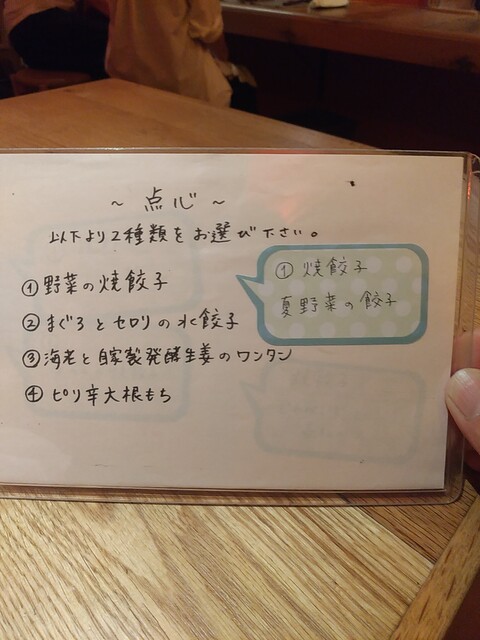 ～点心～
以下より2種類をお選び下さい。
①野菜の焼餃子
②まぐろとセロリの水餃子
③海老と自家製発酵生姜のワンタン
④ピリ辛大根もち
①焼餃子
夏野菜の餃子